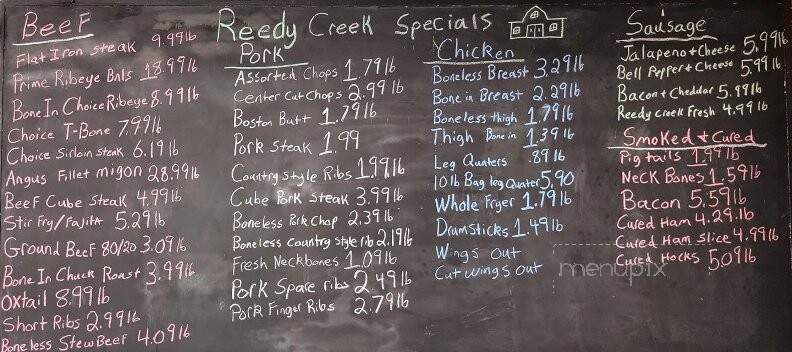 Reedy Creek Specials
Beef
Flat Iron steak 9.99lb
Prime Ribeye Bnls 18.99lb
Bone In Choice Ribeye 8.99lb
Choice T-Bone 7.99lb
Choice Sirloin steak 6.19lb
Angus Fillet migon 28.99lb
Beef Cube steak 4.99lb
Stir Fry/Fajita 5.29lb
Ground Beef 80/20 3.09lb
Bone In Chuck Roast 3.99lb
Oxtail 8.99lb
Short Ribs 2.99lb
Boneless Stew Beef 4.09lb
Pork
Assorted Chops 1.79lb
Center Cut Chops 2.99lb
Boston Butt 1.79lb
Pork steak 1.99
Country style Ribs 1.99lb
Cube Pork steak 3.99lb
Boneless Pork Chop 2.39lb
Boneless Country style rib 2.19lb
Fresh Neckbones 1.09lb
Pork Spare ribs 2.49lb
Pork Finger Ribs 2.79lb
Chicken
Boneless Breast 3.29lb
Bone in Breast 2.29lb
Boneless thigh 1.79lb
Thigh Bone in 1.39lb
Leg Quaters .89lb
10lb Bag leg Quater 5.90
Whole Fryer 1.79lb
Drumsticks 1.49lb
Wings out
Cut wings out
Sausage
Jalapeno + Cheese 5.99lb
Bell Pepper + Cheese 5.99lb
Bacon + Cheddar 5.99lb
Reedy Creek Fresh 4.99lb
Smoked + Cured
Pig tails 1.99lb
Neck Bones 1.59lb
Bacon 5.59lb
Cured Ham 4.29.lb
Cured Ham Slice 4.99lb
Cured Hocks 5.09lb
menupix